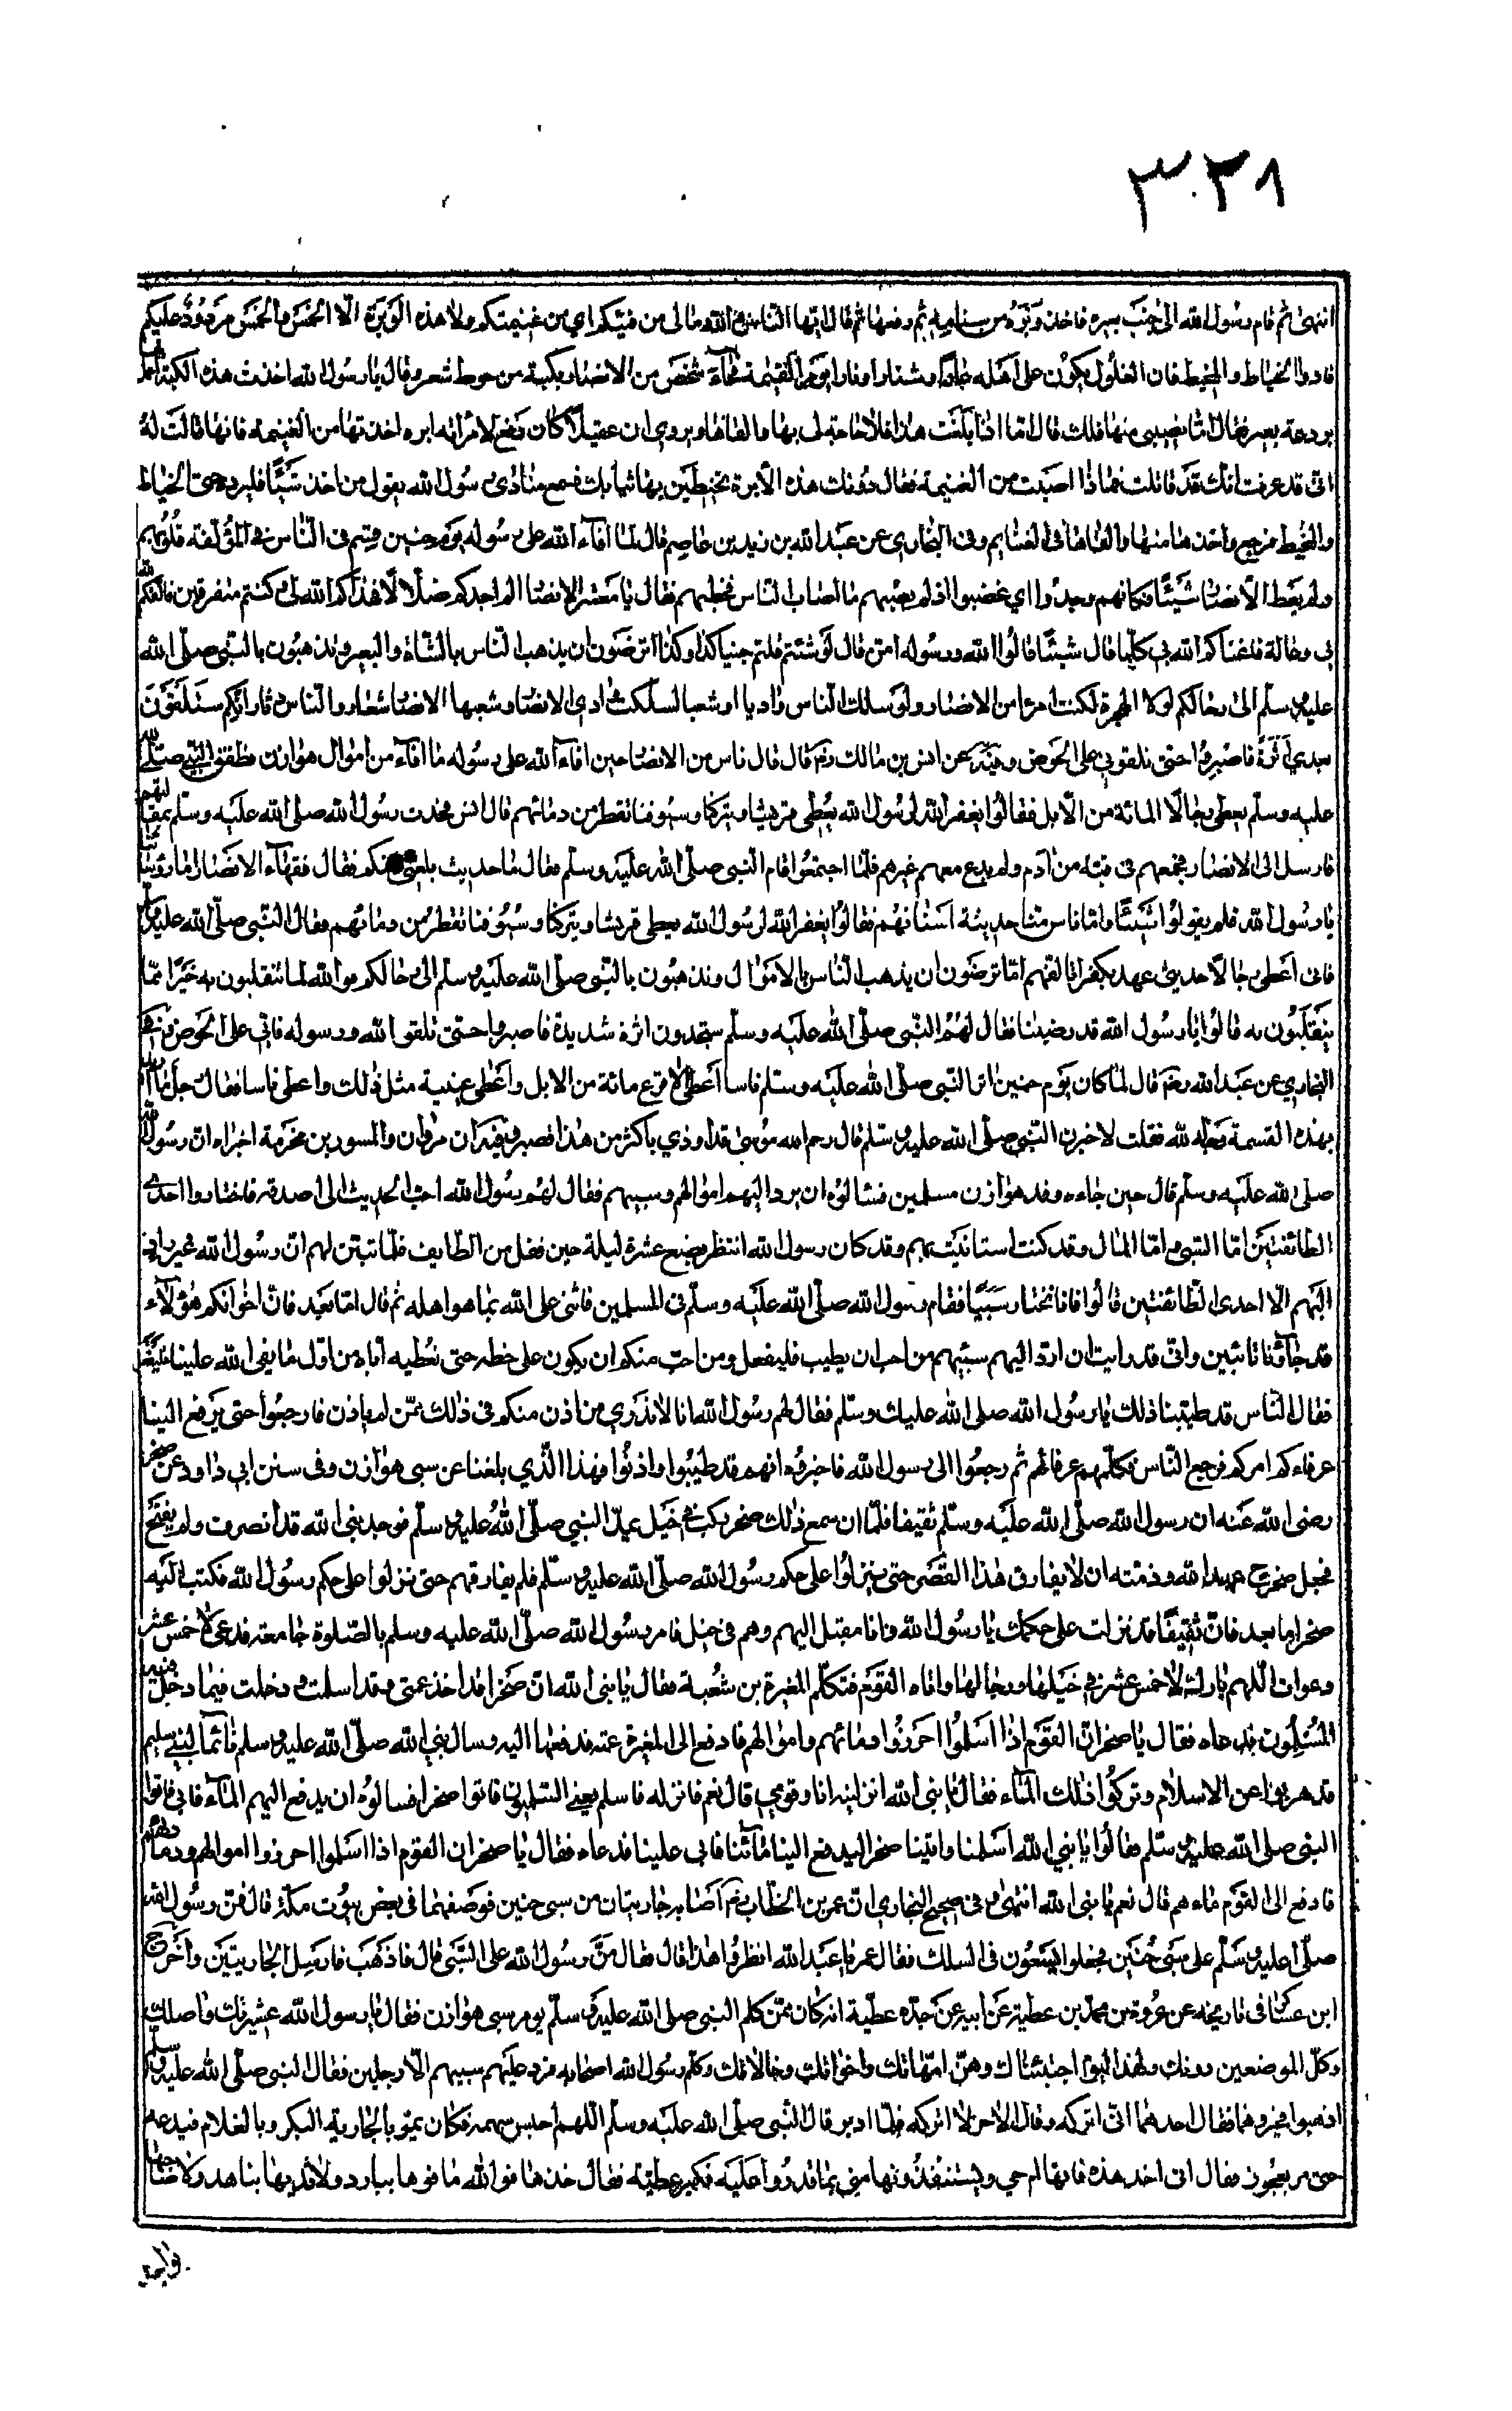 ٣٠٣٨
انتهى ثم قام رسول الله الى جنب بعيره فاخذ وبرة من سنامه ثم رفعها ثم قال ايها الناس والله مالى من فيئكم اي من غنيمتكم ولا هذه الوبرة الا الخمس والخمس مردود عليكم
فادوا الخياط والمخيط فان الغلول يكون على اهله عارا وشنارا ونارا يوم القيمة فجاءه شخص من الانصار بكبة من خيوط شعر وقال يا رسول الله اخذت هذه الكبة اعمل بها
بردعة بعير فقال اما نصيبى منها فلك قال اما اذا بلغت هذا فلا حاجة لى بها والقاها ويروي ان عقيلا كان دفع لامراته ابرة اخذتها من الغنيمة فانها قالت له
انى قد عرفت انك قد قاتلت فماذا اصبت من الغنيمة فقال دونك هذه الابرة تخيطين بها ثيابك فسمع منادى رسول الله يقول من اخذ شيئا فليرده حتى الخياط
والمخيط فرجع واخذها منها والقاها فى الغنايم وفى البخاري عن عبد الله بن زيد بن عاصم قال لما افاء الله على رسوله يوم حنين قسم فى الناس فى المؤلفة قلوبهم
ولم يعط الانصار شيئا فكانهم وجدوا اي غضبوا اذ لم يصبهم ما اصاب الناس فخطبهم فقال يا معشر الانصار الم اجدكم ضلالا فهداكم الله بى وكنتم متفرقين فالفكم الله
بى وعالة فاغناكم الله بى كلما قال شيئا قالوا الله ورسوله امن قال لو شئتم قلتم جئتنا كذا وكذا اترضون ان يذهب الناس بالشاة والبعير وتذهبون بالنبى صلى الله
عليه وسلم الى رحالكم لولا الهجرة لكنت امرءا من الانصار ولو سلك الناس واديا او شعبا لسلكت وادى الانصار وشعبها الانصار شعار والناس دثار انكم ستلقون
بعدي اثرة فاصبروا حتى تلقونى على الحوض وفيه عن انس بن مالك رض قال قال ناس من الانصار حين افاء الله على رسوله ما افاء من اموال هوازن فطفق النبى صلى الله
عليه وسلم يعطى رجالا المائة من الابل فقالوا يغفر الله لرسول الله يعطى قريشا ويتركنا وسيوفنا تقطر من دمائهم قال انس فحدث رسول الله صلى الله عليه وسلم بمقالتهم
فارسل الى الانصار فجمعهم فى قبة من ادم ولم يدع معهم غيرهم فلما اجتمعوا قام النبى صلى الله عليه وسلم فقال ما حديث بلغنى عنكم فقال فقهاء الانصار اما رؤساؤنا
يا رسول الله فلم يقولوا شيئا واما ناس منا حديثة اسنانهم فقالوا يغفر الله لرسول الله يعطى قريشا ويتركنا وسيوفنا تقطر من دمائهم فقال النبى صلى الله عليه وسلم
فانى اعطى رجالا حديثى عهد بكفر اتالفهم اما ترضون ان يذهب الناس بالاموال وتذهبون بالنبى صلى الله عليه وسلم الى رحالكم فوالله لما تنقلبون به خيرا مما
ينقلبون به قالوا يا رسول الله قد رضينا فقال لهم النبى صلى الله عليه وسلم ستجدون اثرة شديدة فاصبروا حتى تلقوا الله ورسوله فانى على الحوض وفى
البخاري عن عبد الله رض قال لما كان يوم حنين اثر النبى صلى الله عليه وسلم ناسا اعطى الاقرع مائة من الابل واعطى عيينة مثل ذلك واعطى ناسا فقال رجل ما اريد
بهذه القسمة وجه الله فقلت لاخبرن النبى صلى الله عليه وسلم قال رحم الله موسى قد اوذي باكثر من هذا فصبر وفيه ان مروان والمسور بن مخرمة اخبراه ان رسول الله
صلى الله عليه وسلم قال حين جاءه وفد هوازن مسلمين فسالوه ان يرد اليهم اموالهم وسبيهم فقال لهم رسول الله احب الحديث الى اصدقه فاختاروا احدى
الطائفتين اما السبى واما المال وقد كنت استانيت بهم وقد كان رسول الله انتظر بضع عشرة ليلة حين قفل من الطايف فلما تبين لهم ان رسول الله غير راد
اليهم الا احدى الطائفتين قالوا فانا نختار سبينا فقام رسول الله صلى الله عليه وسلم فى المسلمين فاثنى على الله بما هو اهله ثم قال اما بعد فان اخوانكم هؤلاء
قد جاؤنا تائبين وانى قد رايت ان ارد اليهم سبيهم من احب ان يطيب فليفعل ومن احب منكم ان يكون على حظه حتى نعطيه اياه من اول ما يفى الله علينا فليفعل
فقال الناس قد طيبنا ذلك يا رسول الله صلى الله عليك وسلم فقال لهم رسول الله انا لا ندري من اذن منكم فى ذلك ممن لم ياذن فارجعوا حتى يرفع الينا
عرفاءكم امركم فرجع الناس فكلمهم عرفائهم ثم رجعوا الى رسول الله فاخبروه انهم قد طيبوا واذنوا فهذا الذي بلغنا عن سبى هوازن وفى سنن ابى داود عن صخر
رضى الله عنه ان رسول الله صلى الله عليه وسلم ثقيفا فلما ان سمع ذلك صخر ركب فى خيل يمد النبي صلى الله عليه وسلم فوجد نبى الله قد انصرف ولم يفتح
فجعل صخر ح عهد الله وذمته ان لا يفارق هذا القصر حتى ينزلوا على حكم رسول الله صلى الله عليه وسلم فلم يفارقهم حتى نزلوا على حكم رسول الله فكتب اليه
صخر اما بعد فان ثقيفا قد نزلت على حكمك يا رسول الله وانا مقبل اليهم وهم فى خيل فامر رسول الله صلى الله عليه وسلم بالصلوة جامعة فدعى لاحمس عشر
دعوات اللهم بارك لاحمس فى خيلها ورجالها واتاه القوم فتكلم المغيرة بن شعبة فقال يا نبى الله ان صخرا قد اخذ عمتى وقد اسلمت ودخلت فيما دخل فيه
المسلمون فدعاه فقال يا صخر ان القوم اذا اسلموا احرزوا دمائهم واموالهم فادفع الى المغيرة عمته فدفعها اليه وسال نبى الله صلى الله عليه وسلم ماء لبنى سليم
قد هربوا عن الاسلام وتركوا ذلك الماء فقال يا نبى الله انزلنيه انا وقومي قال نعم فانزله فاسلم يعنى السلميون فاتوا صخرا فسالوه ان يدفع اليهم الماء فابى فاتوا
النبى صلى الله عليه وسلم فقالوا يا نبي الله اسلمنا واتينا صخرا ليدفع الينا مائنا فابى علينا فدعاه فقال يا صخر ان القوم اذا اسلموا احرزوا اموالهم ودمائهم
فادفع الى القوم ماءهم قال نعم يا نبى الله انتهى وفى صحيح البخاري ان عمر بن الخطاب رض اصاب جاريتان من سبى حنين فوضعهما فى بعض بيوت مكة قال فمن رسول الله
صلى عليه وسلم على سبى حنين فجعلوا يسعون فى السكك فقال عمر يا عبد الله انظر ما هذا قال فقال من رسول الله على السبى قال فاذهب فارسل الجاريتين واخرج
ابن عساكر فى تاريخه عن عروة بن محمد بن عطية عن ابيه عن جده عطية انه كان ممن كلم النبى صلى الله عليه وسلم يوم سبى هوازن فقال يا رسول الله عشيرتك واصلك
وكل المرضعين دونك ولهذا اليوم اختبئناك وهن امهاتك واخواتك وخالاتك وكلم رسول الله اصحابه فرد عليهم سبيهم الا رجلين فقال النبى صلى الله عليه وسلم
اذهبوا فخيروهما فقال احدهما انى اتركه وقال الاخر لا اتركه فلما ادبر قال النبى صلى الله عليه وسلم اللهم اخس سهمه فكان يمر بالجارية البكر وبالغلام فيدعه
حتى مر بعجوز فقال انى اخذ هذه فانها ام حي ويستنقذونها مني بما قدروا عليه فكبر عطية فقال خذها فوالله ما فوها ببارد ولا ثديها بناهد ولا صاحبها